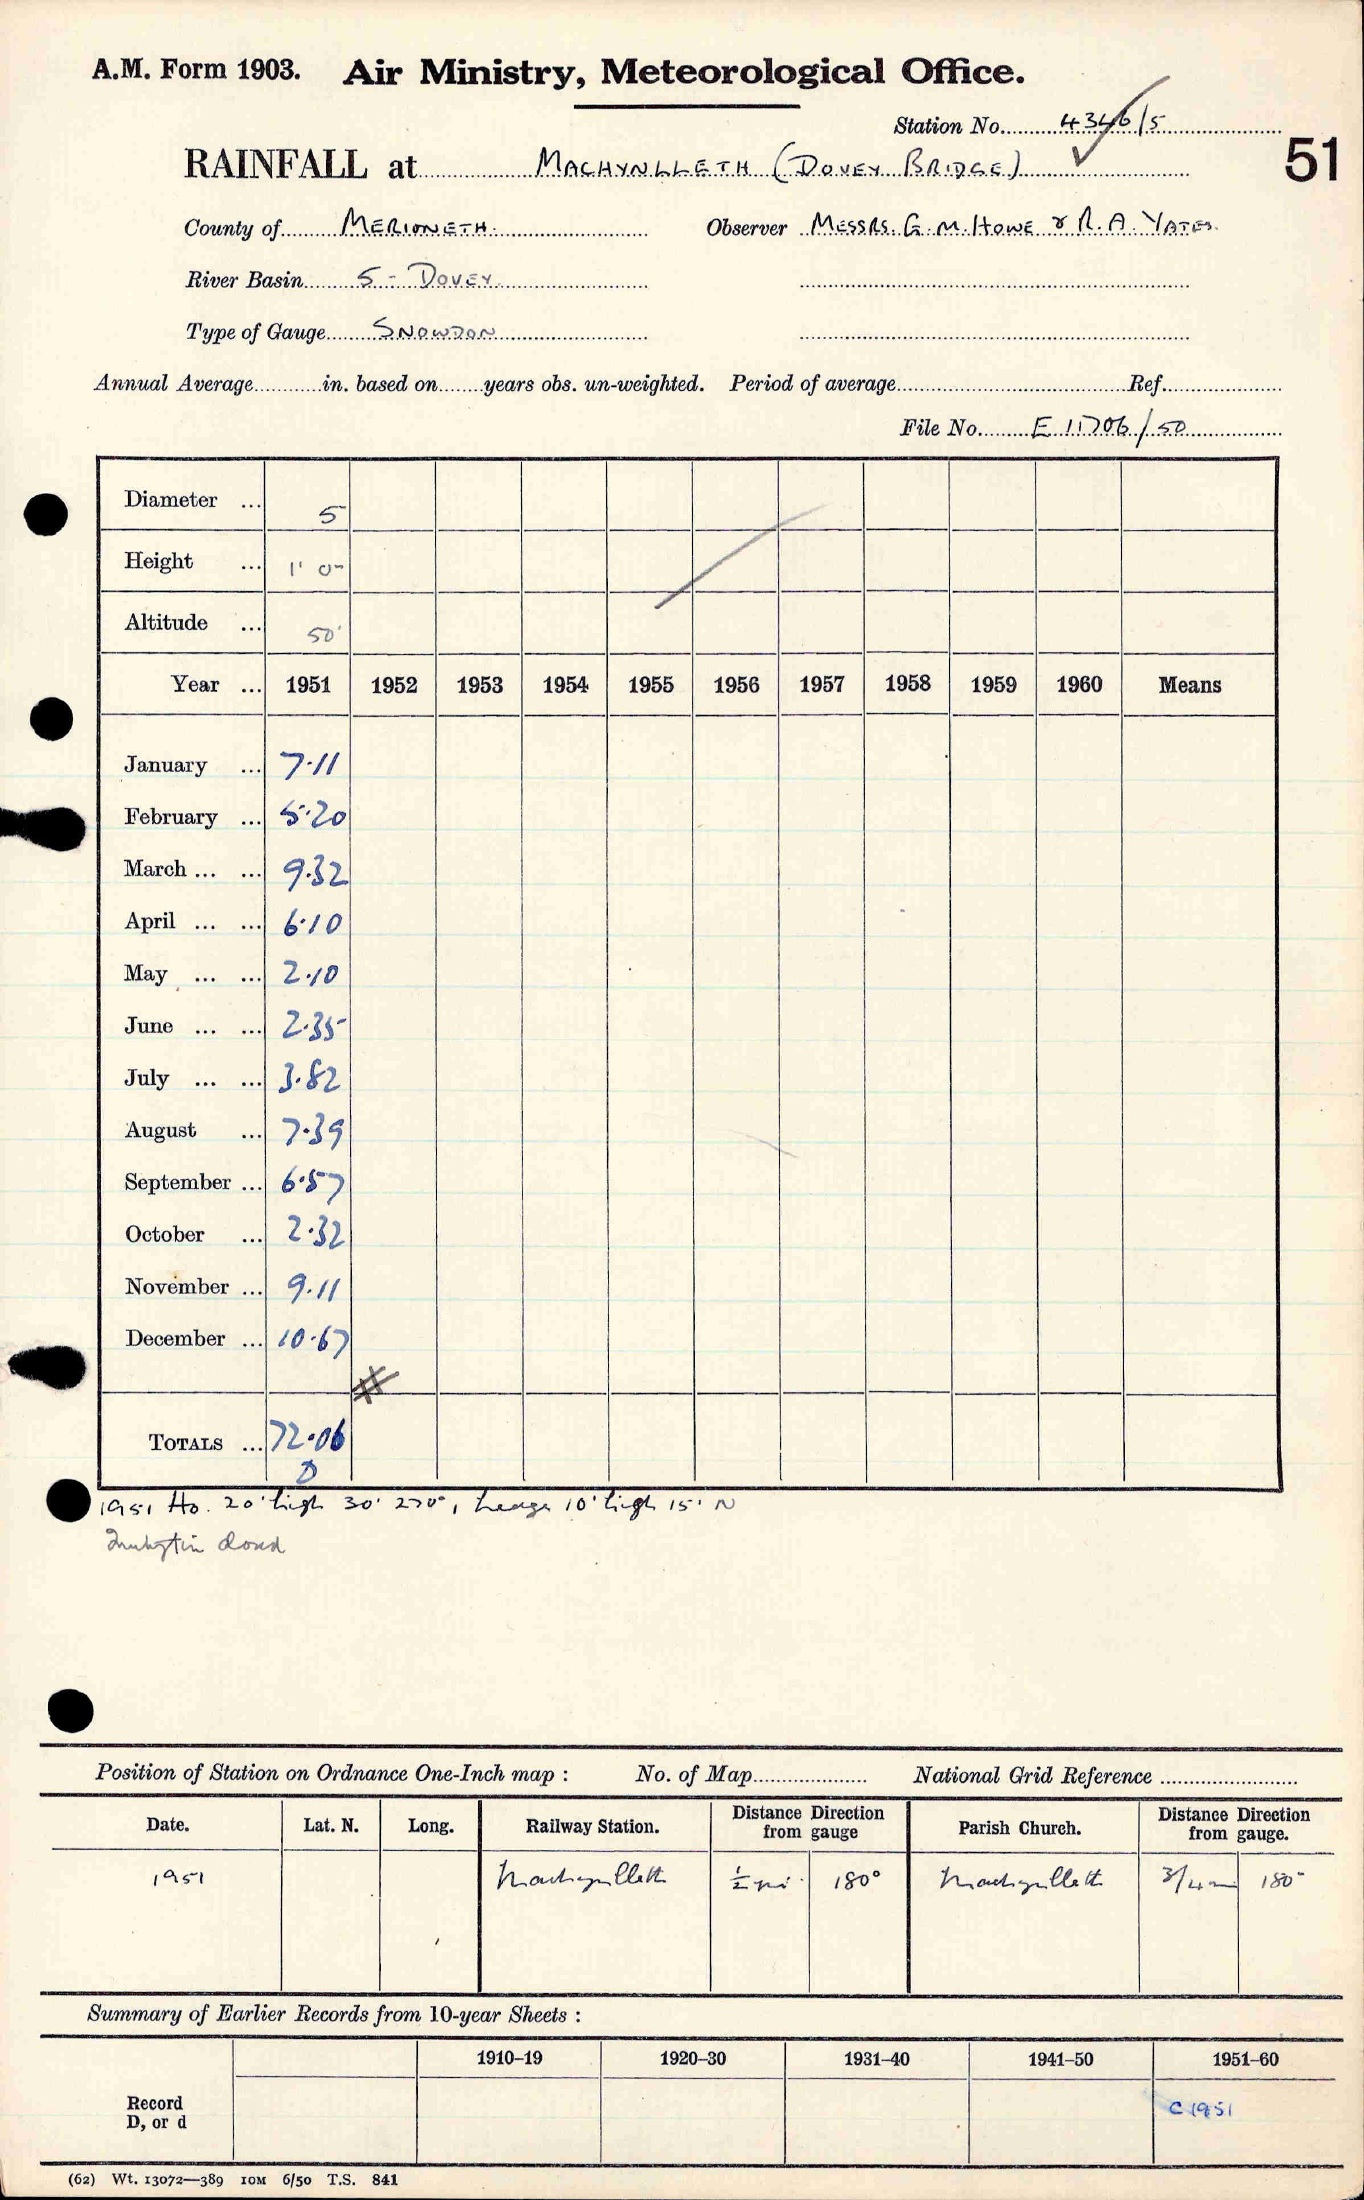 A.M. Form 1903. Air Ministry, Meteorological Office.
Station No. 4346/5
51
RAINFALL at MACHYNLLETH (DOVEY BRIDGE)
County of MERIONETH. Observer MESSRS. G. M. HOWE & R. A. YATES.
River Basin 5 - DOVEY
Type of Gauge SNOWDON
Annual Average in. based on years obs. un-weighted. Period of average Ref.
File No. E 11706/50
Diameter ... 5
Height ... 1' 0"
Altitude ... 50'
Year ... 1951 1952 1953 1954 1955 1956 1957 1958 1959 1960 Means
January ... 7.11
February ... 5.20
March ... ... 9.32
April ... ... 6.10
May ... ... 2.10
June ... ... 2.35
July ... ... 3.82
August ... 7.39
September ... 6.57
October ... 2.32
November ... 9.11
December ... 10.67
TOTALS ... 72.06
D
1951 Ho. 20' high 30' 270°, hedge 10' high 15' N
Position of Station on Ordnance One-Inch map : No. of Map National Grid Reference
Date. Lat. N. Long. Railway Station. Distance Direction from gauge Parish Church. Distance Direction from gauge.
1951 Machynlleth ½ mi. 180° Machynlleth 3/4 m 180°
Summary of Earlier Records from 10-year Sheets :
1910–19 1920–30 1931–40 1941–50 1951–60
Record
D, or d
C 1951
(62) Wt. 13072—389 10M 6/50 T.S. 841